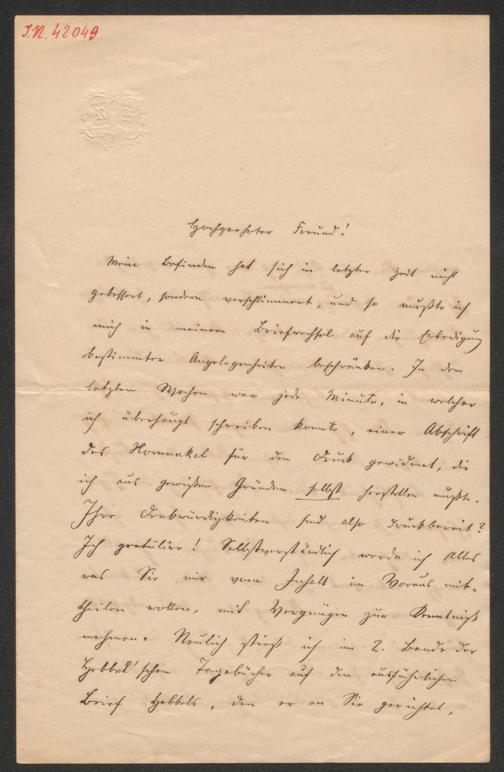 I.N. 42049
Hochgeehrter Freund!
Mein Befinden hat sich in letzter Zeit nicht
gebessert, sondern verschlimmert, und so mußte ich
mich in meinem Briefwechsel auf die Erledigung
bestimmter Angelegenheiten beschränken. In den
letzten Wochen war jede Minute, in welcher
ich überhaupt schreiben konnte, einer Abschrift
des Homunkel für den Druck gewidmet, die
ich aus gewißen Gründen selbst herstellen mußte.
Ihre Denkwürdigkeiten sind also druckbereit?
Ich gratulire! Selbstverständlich werde ich Alles
was Sie mir vom Inhalt im Voraus mit-
theilen wollen, mit Vergnügen zur Kenntniß
nehmen. Neulich stieß ich im 2. Bande der
Hebbel'schen Tagebücher auf den ausführlichen
Brief Hebbels, den er an Sie gerichtet,